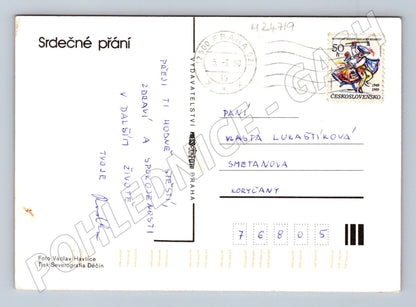 Srdečné přání
424719
PŘEJI TI HODNĚ ŠTĚSTÍ,
ZDRAVÍ A SPOKOJENOSTI
V DALŠÍM ŽIVOTĚ
TVOJE
Foto Václav Havlice
Tisk Severografia Děčín
VYDAVATELSTVÍ
PRAHA
PRAHA
50
ČESKOSLOVENSKO
PANÍ
VLASTA LUKAŠTÍKOVÁ
SMETANOVA
KORYČANY
76805
POHLEDNICE - GATH